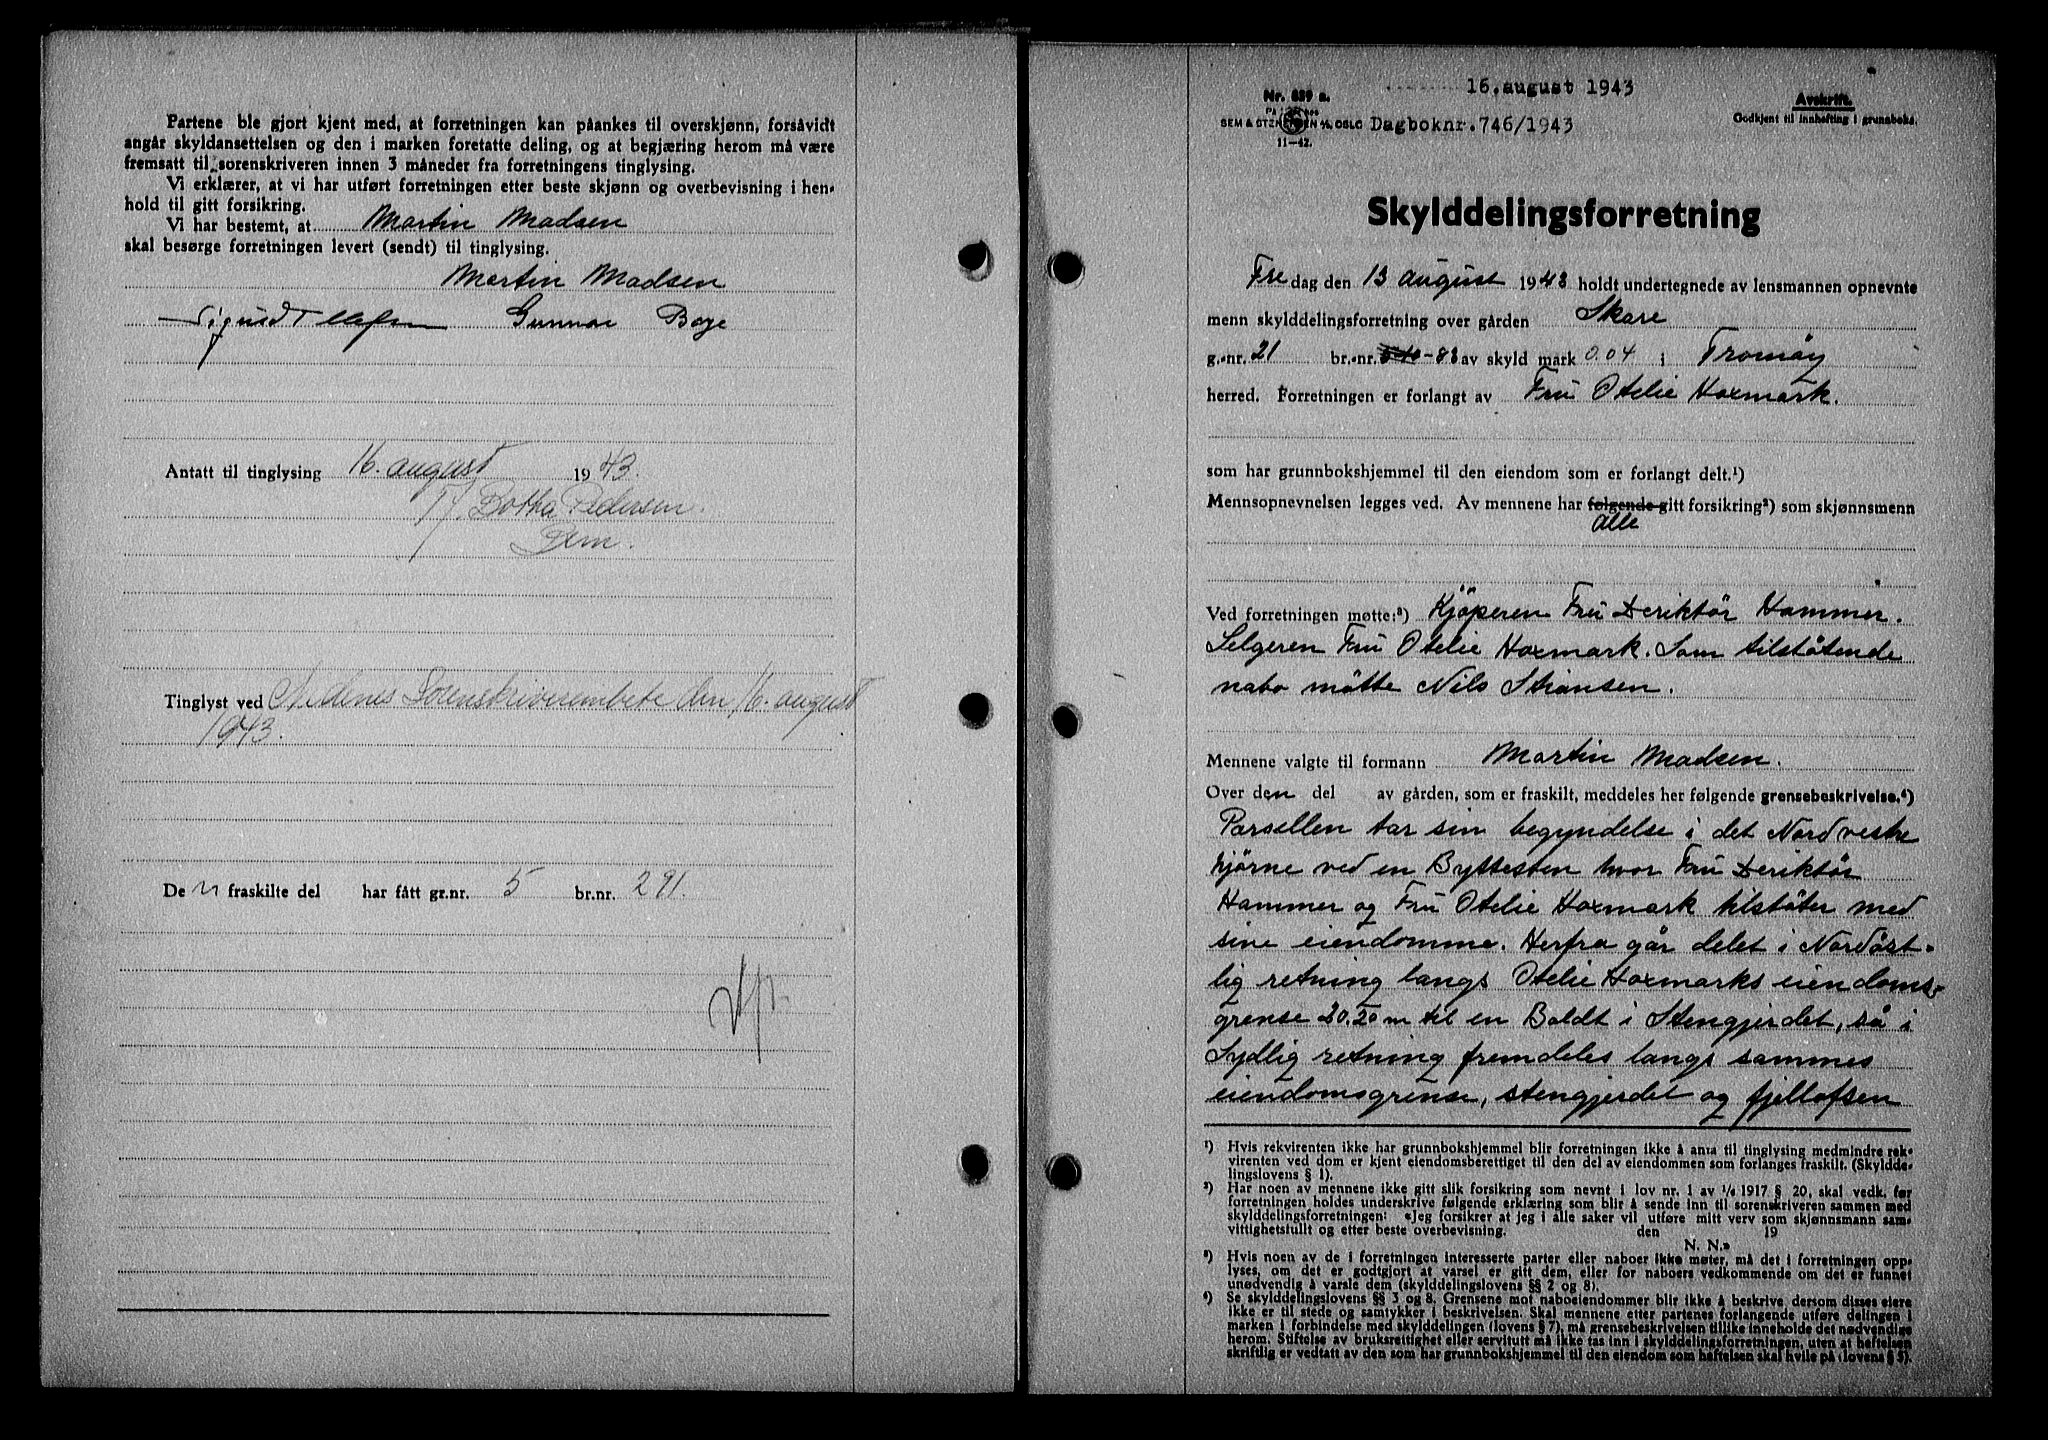 Partene ble gjort kjent med, at forretningen kan påankes til overskjønn, forsåvidt
angår skyldansettelsen og den i marken foretatte deling, og at begjæring herom må være
fremsatt til sorenskriveren innen 3 måneder fra forretningens tinglysing.
Vi erklærer, at vi har utført forretningen etter beste skjønn og overbevisning i hen-
hold til gitt forsikring.
Vi har bestemt, at Martin Madsen
skal besørge forretningen levert (sendt) til tinglysing.
Martin Madsen
Sigurd Gunnar Boye
Antatt til tinglysing 16. august 1943.
Botha Pedersen
Tinglyst ved Nedenes Sorenskriverembete den 16. august
1943.
De n fraskilte del har fått gr.nr. 5 br.nr. 291.
16. august 1943
Nr. 889 a.
SEM & STENERSEN A/S, OSLO Dagboknr. 746/1943
11-42.
Avskrift.
Godkjent til innhefting i grunnboka.
Skylddelingsforretning
Fredag den 13 august 1943 holdt undertegnede av lensmannen opnevnte
menn skylddelingsforretning over gården Skare
g.-nr. 21 br.-nr. 83 av skyld mark 0.04 i Tromøy
herred. Forretningen er forlangt av Fru Otelie Hoxmark.
som har grunnbokshjemmel til den eiendom som er forlangt delt.¹)
Mennsopnevnelsen legges ved. Av mennene har følgende gitt forsikring²) som skjønnsmenn
alle
Ved forretningen møtte:³) Kjöperen Fru Deriktör Hammer.
Selgeren Fru Otelie Hoxmark. Som tilstötende
nabo mötte Nils Stransen.
Mennene valgte til formann Martin Madsen.
Over den del av gården, som er fraskilt, meddeles her følgende grensebeskrivelse.⁴)
Parsellen tar sin begyndelse i det Nordvestre
hjörne ved en Byttesten hvor Fru Deriktör
Hammer og Fru Otelie Hoxmark tilstöter med
sine eiendomme. Herfra går delet i Nordöst-
lig retning langs Otelie Hoxmarks eiendoms-
grense 20.20 m til en Boldt i Stengjerdet, så i
Sydlig retning fremdeles langs sammes
eiendomsgrense, stengjerdet og fjellofsen
¹) Hvis rekvirenten ikke har grunnbokshjemmel blir forretningen ikke å anta til tinglysing medmindre rek-
virenten ved dom er kjent eiendomsberettiget til den del av eiendommen som forlanges fraskilt. (Skyldde-
lingslovens § 1).
²) Har noen av mennene ikke gitt slik forsikring som nevnt i lov nr. 1 av 1/6 1917 § 20, skal vedk. før
forretningen holdes underskrive følgende erklæring som blir å sende inn til sorenskriveren sammen med
skylddelingsforretningen: «Jeg forsikrer at jeg i alle saker vil utføre mitt verv som skjønnsmann sam-
vittighetsfullt og etter beste overbevisning. den 19
N. N.»
³) Hvis noen av de i forretningen interesserte parter eller naboer ikke møter, må det i forretningen opp-
lyses, om det er godtgjort at varsel er gitt dem, eller for naboers vedkommende om det er funnet
unødvendig å varsle dem (skylddelingslovens §§ 2 og 8).
⁴) Se skylddelingslovens §§ 3 og 8. Grensene mot naboeiendommer blir ikke å beskrive dersom disses eiere
ikke er til stede og samtykker i beskrivelsen. Skal mennene etter partenes forlangende utføre delingen i
marken i forbindelse med skylddelingen (lovens § 7), må grensebeskrivelsen tillike inneholde det nødvendige
herom. Stiftelse av bruksrettighet eller servitutt må ikke tas inn i skylddelingsforretningen, uten at heftelsen
skriftlig er vedtatt av den som har grunnbokshjemmel til den eiendom som heftelsen skal hvile på (lovens § 5).